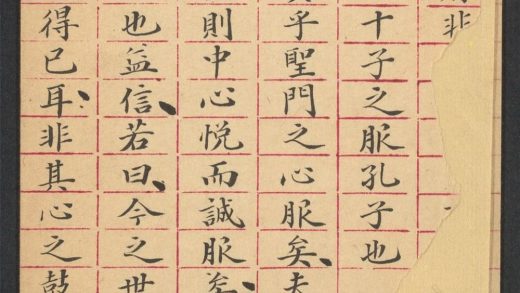 非
十子之服孔子也
乎聖門之心服矣、夫
則中心悦而誠服矣、
也益信、若曰、今之世
得已耳、非其心之鼓